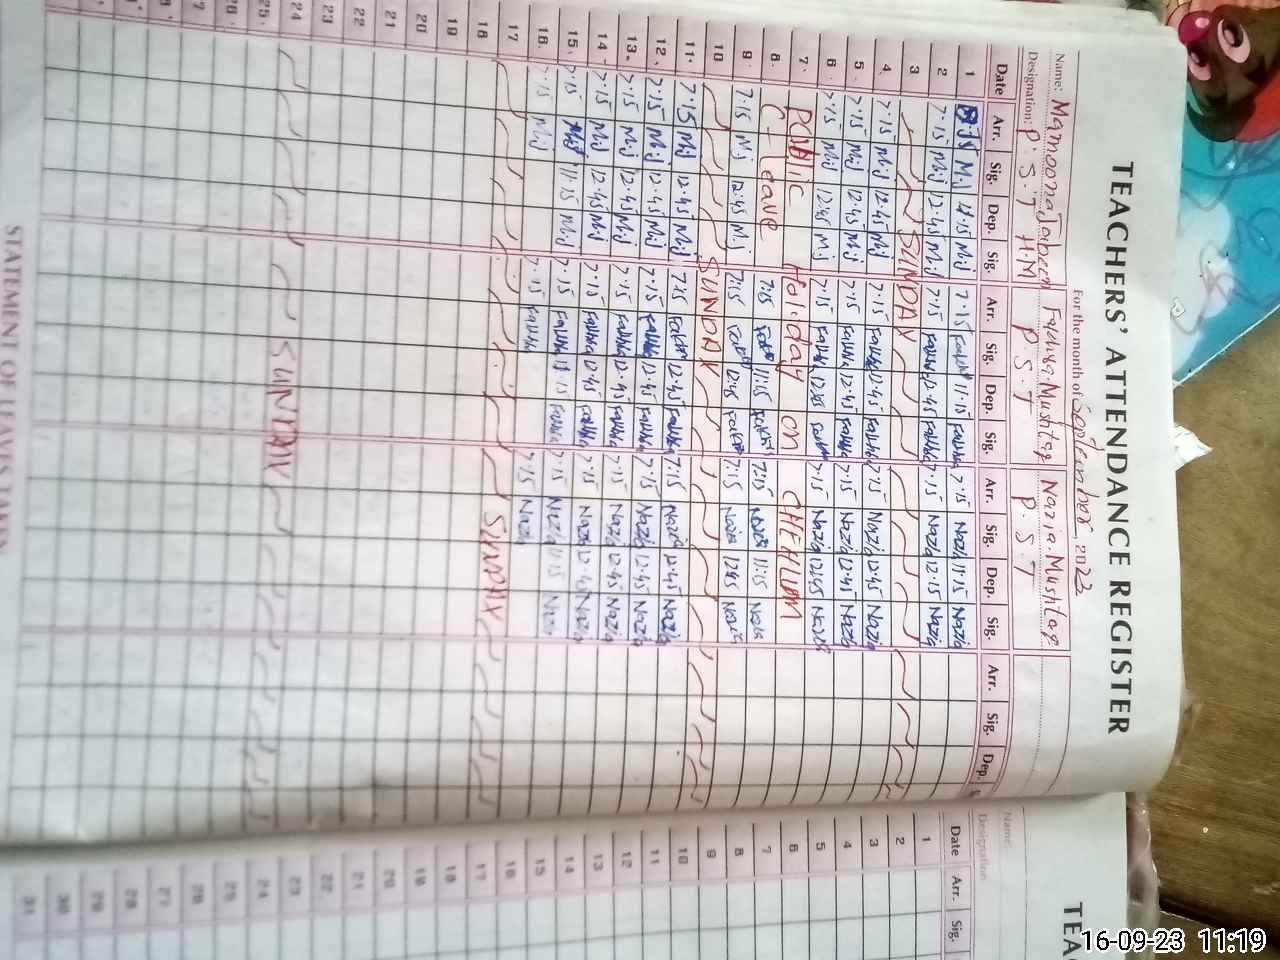 TEACHERS' ATTENDANCE REGISTER
For the month of September 2023
Name: Mamoona Jabeen Fakhra Mushtaq Nazia Mushtaq
Designation: P.S.T H.M P.S.T P.S.T
Date Arr. Sig. Dep. Sig. Arr. Sig. Dep. Sig. Arr. Sig. Dep. Sig. Arr. Sig. Dep.
1 11.15 Mij 7.15 Fakhra 11.15 Fakhra 7.15 Nazia 11.15 Nazia
2 7.15 Mij 12.45 Mij 7.15 Fakhra 12.45 Fakhra 7.15 Nazia 12.15 Nazia
3 SUNDAY
4 7.15 Mij 12.45 Mij 7.15 Fakhra 12.45 Fakhra 7.15 Nazia 12.45 Nazia
5 7.15 Mij 12.45 Mij 7.15 Fakhra 12.45 Fakhra 7.15 Nazia 12.45 Nazia
6 7.15 Mij 12.45 Mij 7.15 Fakhra 12.45 Fakhra 7.15 Nazia 12.45 Nazia
7. Public Holiday on CHEHLUM
8. C-Leave 7:15 Fakhra 11:15 Fakhra 7:15 Nazia 11:15 Nazia
9. 7.15 Mij 12:45 Mij 7:15 Fakhra 12:45 Fakhra 7:15 Nazia 12:45 Nazia
10 SUNDAY
11. 7.15 Mij 12.45 Mij 7.15 Fakhra 12.45 Fakhra 7.15 Nazia 12.45 Nazia
12. 7.15 Mij 12.45 Mij 7.15 Fakhra 12.45 Fakhra 7.15 Nazia 12.45 Nazia
13. 7.15 Mij 12.45 Mij 7.15 Fakhra 12.45 Fakhra 7.15 Nazia 12.45 Nazia
14 7.15 Mij 12.45 Mij 7.15 Fakhra 12.45 Fakhra 7.15 Nazia 12.45 Nazia
15. 7.15 Mij 11.15 Mij 7.15 Fakhra 11.15 Fakhra 7.15 Nazia 11.15 Nazia
16. 7.15 Mij 7.15 Fakhra 7.15 Nazia
17 SUNDAY
18
19
20
21
22
23
24 SUNDAY
25
26
STATEMENT OF LEAVES TAKEN
TEA
Name:
Designation:
Date Arr. Sig.
1
2
3
4
5
6
7
8
9
10
11
12
13
14
15
16
17
18
19
20
21
22
23
24
25
26
27
28
29
30
31
16-09-23 11:19